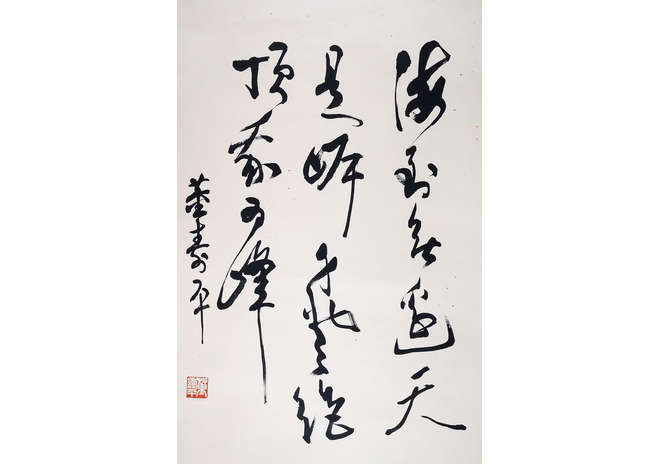 海到無邊天
是岸山登絕
頂我為峰
董壽平